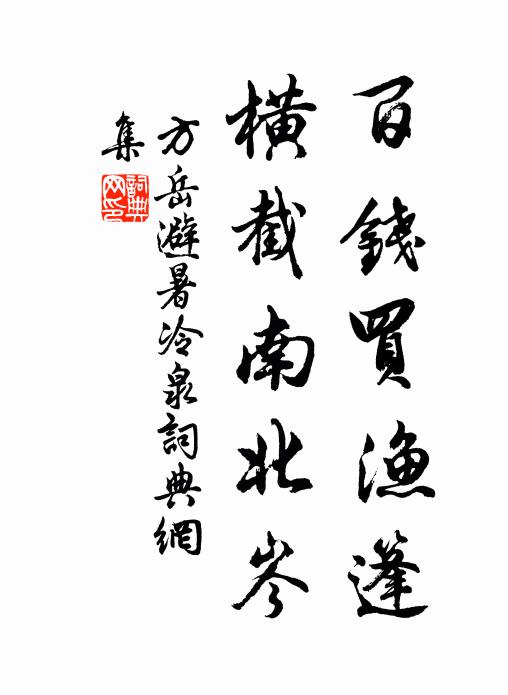 百錢買漁篷
橫截南北岑
方岳避暑冷泉詞典網
集
詞典
网印